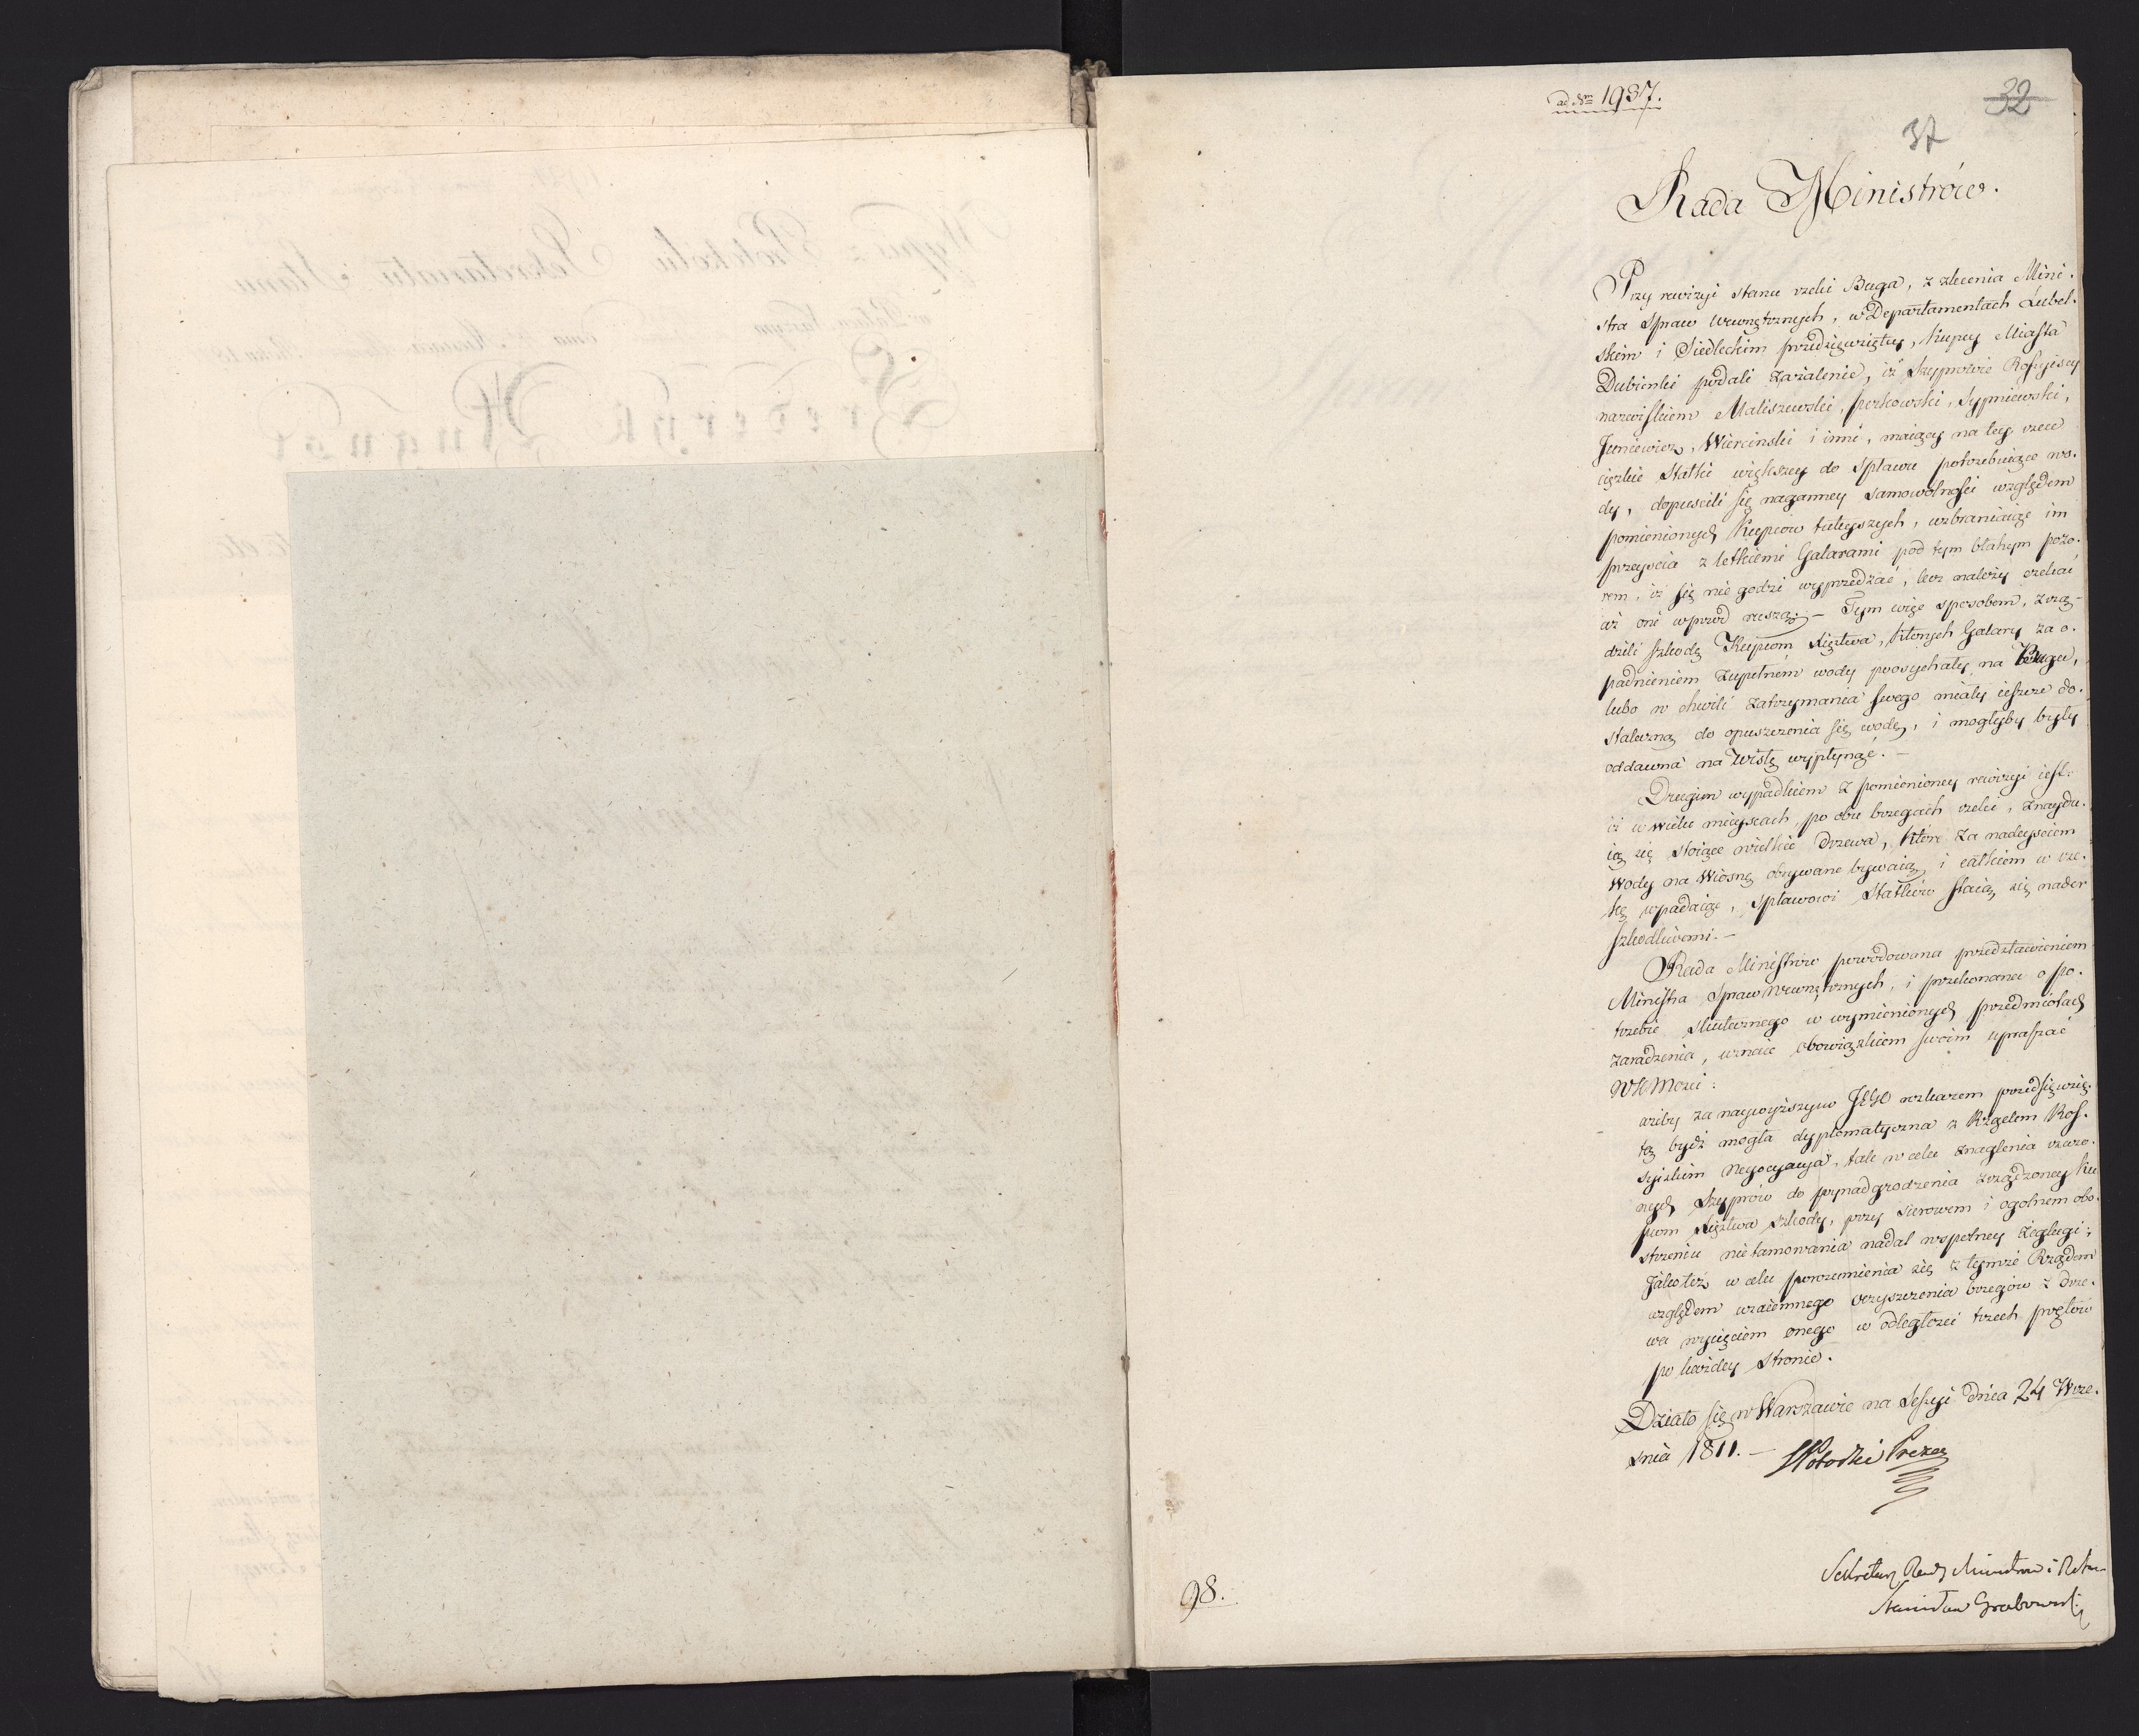 ad Nrm 1937.
32
37
Rada Ministrów.
Przy rewizyi stanu rzeki Buga, z zlecenia Mini-
stra Spraw Wewnętrznych, w Departamentach Lubel-
skim i Siedleckim przedsięwziętey, Kupcy Miasta
Dubienki podali zażalenie, iż Szyprowie Rossyiscy
nazwiskiem Maliszewski, Perkowski, Sypniewski,
Juniewicz, Wiercinski i inni, maiący na tey rzece
ciężkie Statki większey do Spławu potrzebuiące wo-
dy, dopuscili się naganney samowolności względem
pomienionych Kupcow tuteyszych, wzbraniaiąc im
przeyscia z letkiemi Galarami pod tym błahym pozo-
rem, iż się nie godzi wyprzedzać, lecz należy czekać
aż oni wprzód ruszą. – Tym więc sposobem, zrzą-
dzili szkodę Kupcom Xięztwa, ktorych Galary za o-
padnieniem zupełném wody poosychały na Bugu,
lubo w chwili zatrzymania swego miały ieszcze do-
stateczną do opuszczenia się wodę, i mogłyby były
oddawna na Wisłę wypłynąć. –
Drugim wypadkiem z pomienioney rewizyi iest:
iż w wielu mieyscach, po obu brzegach rzeki, znaydu-
ią się stoiące wielkie drzewa, które za nadeysciem
Wody na Wiosnę obrywane bywaią, i całkiem w rze-
kę wpadaiąc, spławowi Statków staią się nader
szkodliwemi. –
Rada Ministrów powodowana przedstawieniem
Ministra Spraw Wewnętrznych, i przekonana o po-
trzebie skutecznego w wymienionych przedmiotach
zaradzenia, uznaie obowiązkiem swoim upraszać
WKMości:
ażeby za naywyższym JEGO rozkazem przedsięwzię-
tą bydź mogła dyplomatyczna z Rządem Ros-
syiskim Negocyacya, tak w celu znaglenia rzeczo-
nych Szyprów do wynadgrodzenia zrządzoney Ku-
pcom Xięztwa szkody, przy surowem i ogolnem obo-
strzeniu nietamowania nadal wspolney żeglugi;
Jako też w celu porozumienia się z tymże Rządem
względem wzaiemnego oczyszczenia brzegów z drze-
wa wycięciem onego w odległości trzech prętów
po każdey stronie.
Działo się w Warszawie na Sessyi dnia 24 Wrze-
snia 1811. – SPotocki Prezes
Sekretarz Rady Ministrow i R. Stanu
Stanisław Grabowski
98.